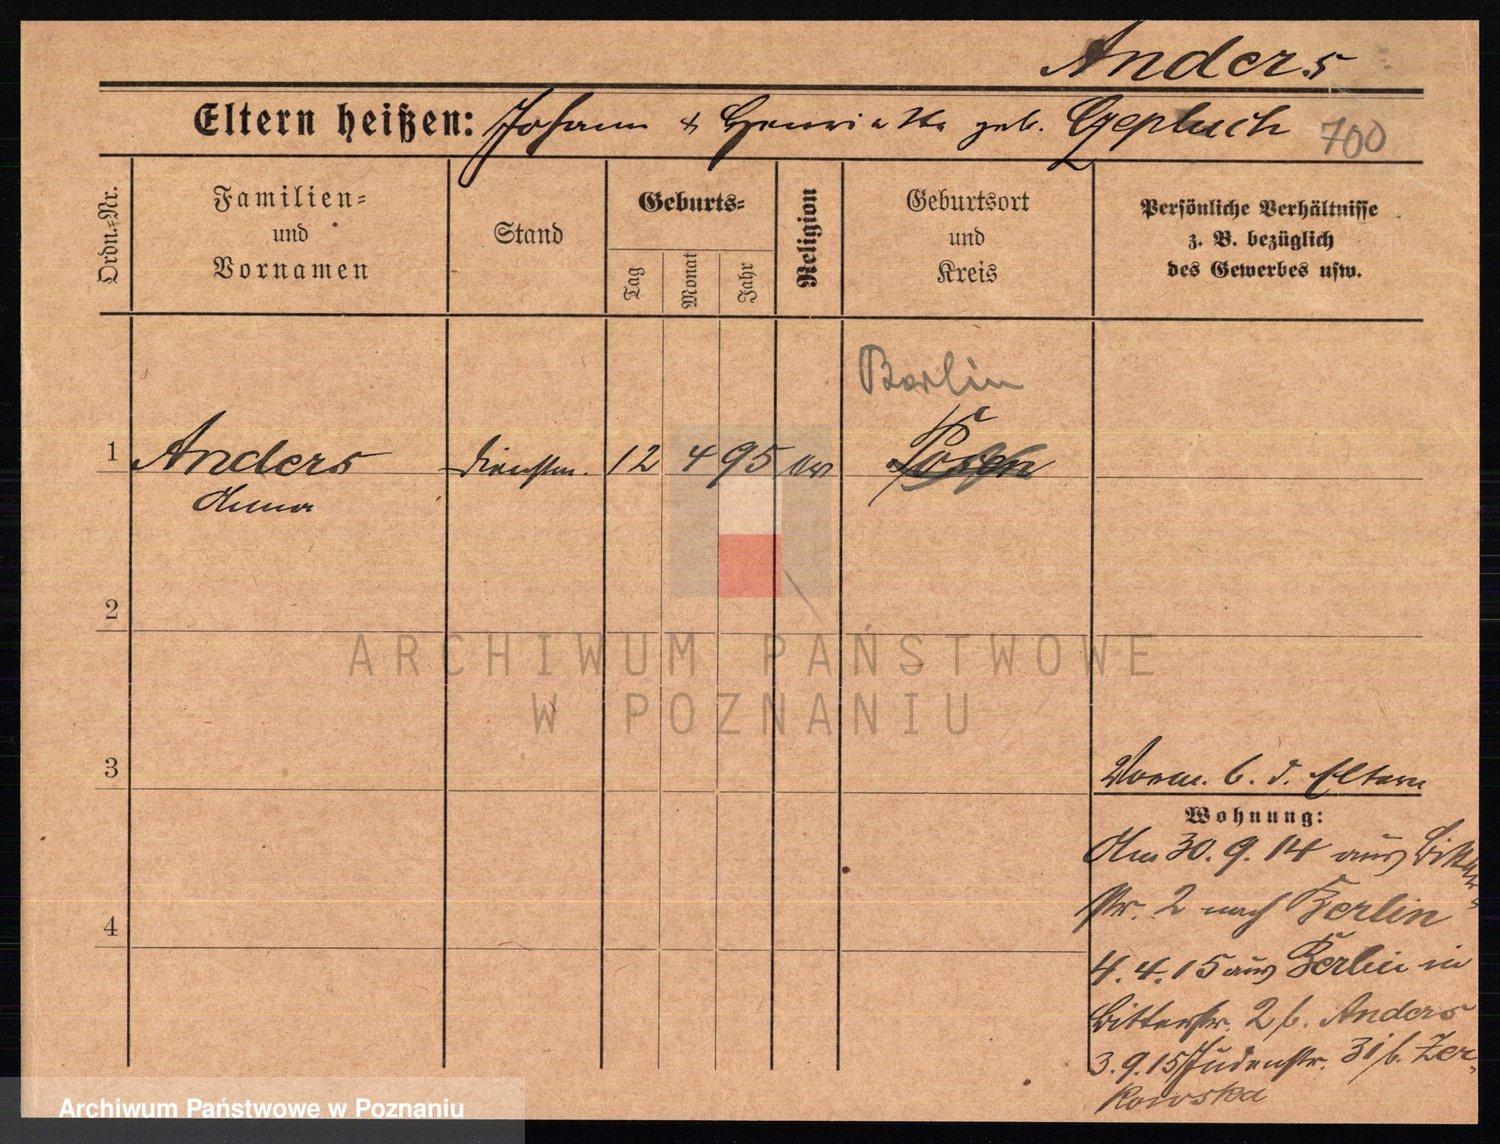 Anders
Eltern heißen: Johann & Henriette geb. Gepluch 700
Ordn.-Nr.
Familien-
und
Vornamen
Stand
Geburts-
Tag
Monat
Jahr
Religion
Geburtsort
und
Kreis
Persönliche Verhältnisse
z. B. bezüglich
des Gewerbes usw.
Berlin
1 Anders Dienstm. 12 4 95 ev Posen
Anna
2
ARCHIWUM PAŃSTWOWE
W POZNANIU
3
Vorm. b. d. Eltern
Wohnung:
Am 30. 9. 14 aus Bitter
str. 2 nach Berlin
4
4. 4. 15 aus Berlin in
Bitterstr. 2 b. Anders
3. 9. 15 Judenstr. 31 b. Zer-
kowska
Archiwum Państwowe w Poznaniu